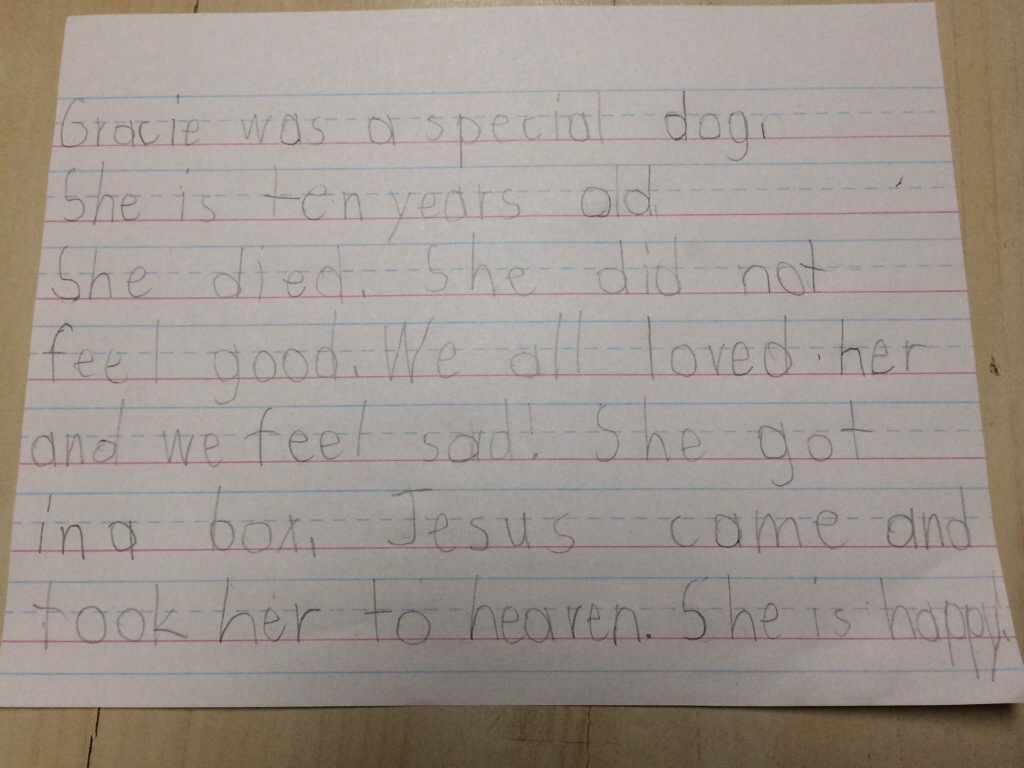 Gracie was a special dog.
She is ten years old
She died. She did not
feel good. We all loved her
and we feel sad. She got
in a box. Jesus came and
took her to heaven. She is happy.